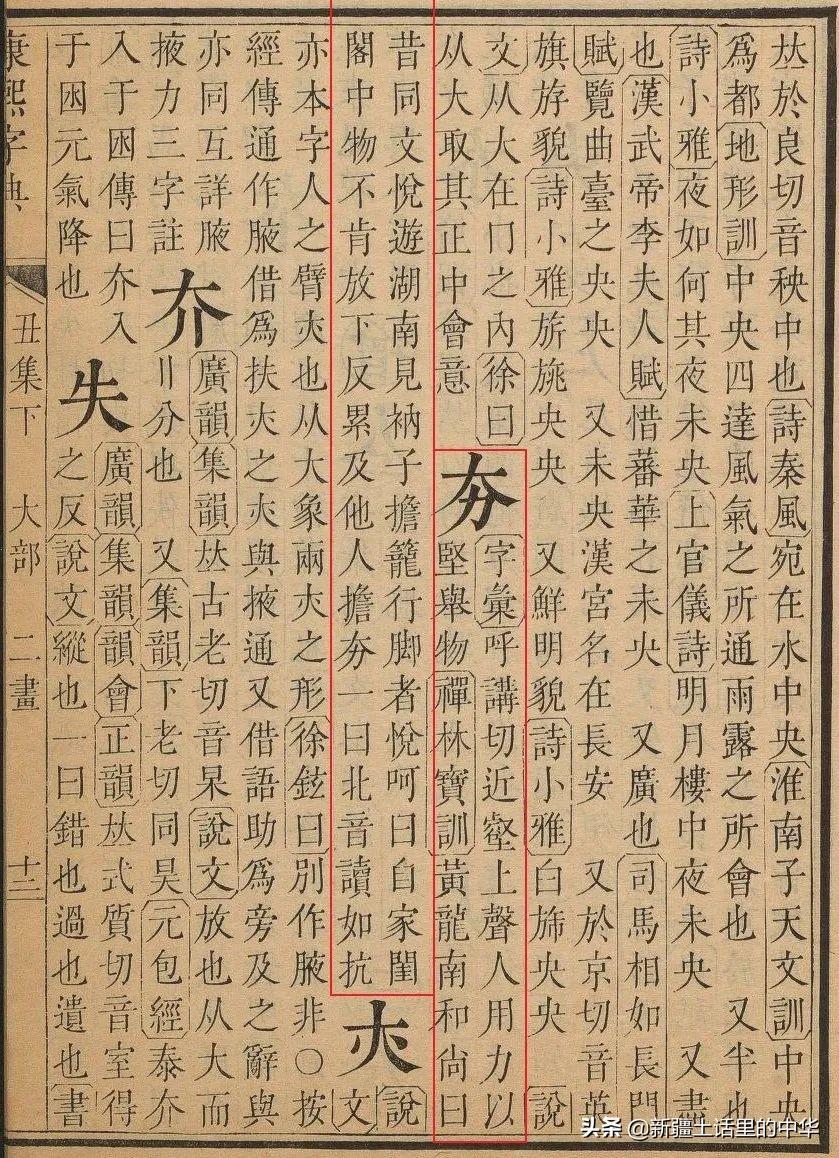 𠀤於良切音秧中也詩秦風宛在水中央淮南子天文訓中央
爲都地形訓中央四達風氣之所通雨露之所會也 又半也
詩小雅夜如何其夜未央上官儀詩明月樓中夜未央 又盡
也漢武帝李夫人賦惜蕃華之未央 又廣也司馬相如長門
賦覽曲臺之央央 又未央漢宮名在長安 又於京切音英
旗斿貌詩小雅旂旐央央 又鮮明貌詩小雅白斾央央 說
文从大在冂之內徐曰
从大取其正中會意
夯
字彙呼講切近壑上聲人用力以
堅舉物禪林寶訓黃龍南和尚曰
昔同文悅遊湖南見衲子擔籠行脚者悅呵曰自家閨
閣中物不肯放下反累及他人擔夯一曰北音讀如抗
𡗕
說
文
亦本字人之臂𡗕也从大象兩𡗕之形徐鉉曰別作腋非○按
經傳通作腋借爲扶𡗕之𡗕與掖通又借語助爲旁及之辭與
亦同互詳腋
掖力三字註
夰
廣韻集韻𠀤古老切音杲說文放也从大而
〢分也 又集韻下老切同昊元包經泰夰
入于囦傳曰夰入
于囦元氣降也
失
廣韻集韻韻會正韻𠀤式質切音室得
之反說文縱也一曰錯也過也遺也書
康熙字典
丑集下 大部 二畫 十三
头条 @新疆土话里的中华